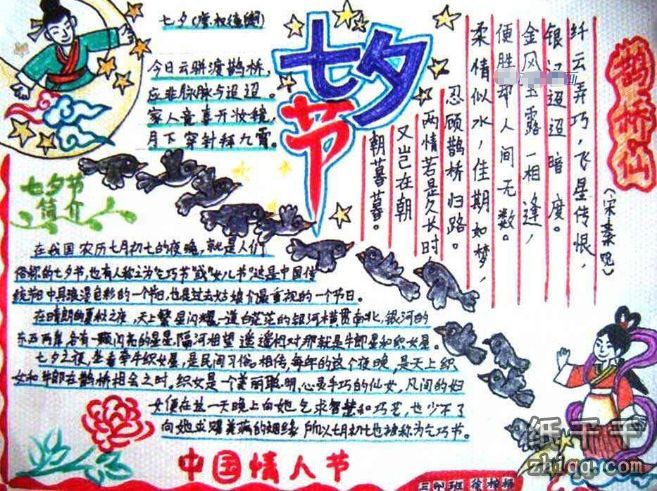 七夕(唐 权德舆)
今日云骈渡鹊桥,
应非脉脉与迢迢
家人竞喜开妆镜,
月下穿针拜九霄。
七夕节
鹊桥仙
(宋 秦观)
纤云弄巧,飞星传恨,
银汉迢迢暗度。
金风玉露一相逢,
便胜却人间无数。
柔情似水,佳期如梦,
忍顾鹊桥归路。
两情若是久长时
又岂在朝
朝暮暮。
七夕节
简介
在我国农历七月初七的夜晚,就是人们
俗称的七夕节,也有人称之为"乞巧节"或"女儿节"这是中国传
统节日中具浪漫色彩的一个节日,也是过去姑娘们最重视的一个节日。
在晴朗的夏秋之夜,天上繁星闪耀,一道白茫茫的银河横贯南北,银河的
东西两岸,各有一颗闪亮的星星,隔河相望,遥遥相对,那就是牛郎星和织女星。
七夕之夜,坐看牵牛织女星,是民间习俗,相传,每年的这个夜晚,是天上织
女和牛郎在鹊桥相会之时,织女是一个美丽聪明,心灵手巧的仙女,凡间的妇
女便在这一天晚上向她乞求智慧和巧艺,也少不了
向她求赐美满的姻缘,所以七月初七也被称为乞巧节。
中国情人节
三 班 徐
纸千千
zh1qq.com